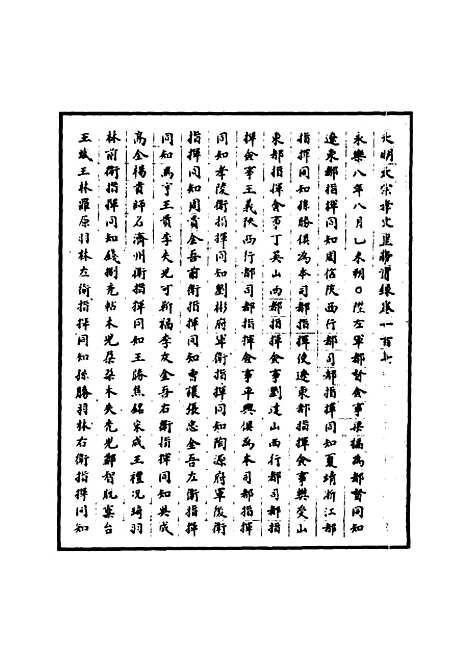 大明太宗文皇帝實錄卷一百七
永樂八年八月乙未朔○陞左軍都督僉事梁福為都督同知
遼東都指揮同知周信陝西行都司都指揮同知夏靖浙江都
指揮同知孫勝俱為本司都指揮使遼東都指揮僉事樊受山
東都指揮僉事丁英山西都指揮僉事劉達山西行都司都指
揮僉事王義陝西行都司都指揮僉事平興俱為本司都指揮
同知孝陵衛指揮同知劉彬府軍衛指揮同知陶源府軍後衛
指揮同知周貴金吾前衛指揮同知曹讓張忠金吾左衛指揮
同知馬亨王貴李夫光可斬福李友金吾右衛指揮同知吳成
高全楊貴師石濟州衛指揮同知王勝焦銘宋成王禮況琦羽
林前衛指揮同知錢捌禿帖木兒朵朵木失禿兒鄭智脫稾台
王斌王林羅原羽林左衛指揮同知孫勝羽林右衛指揮同知